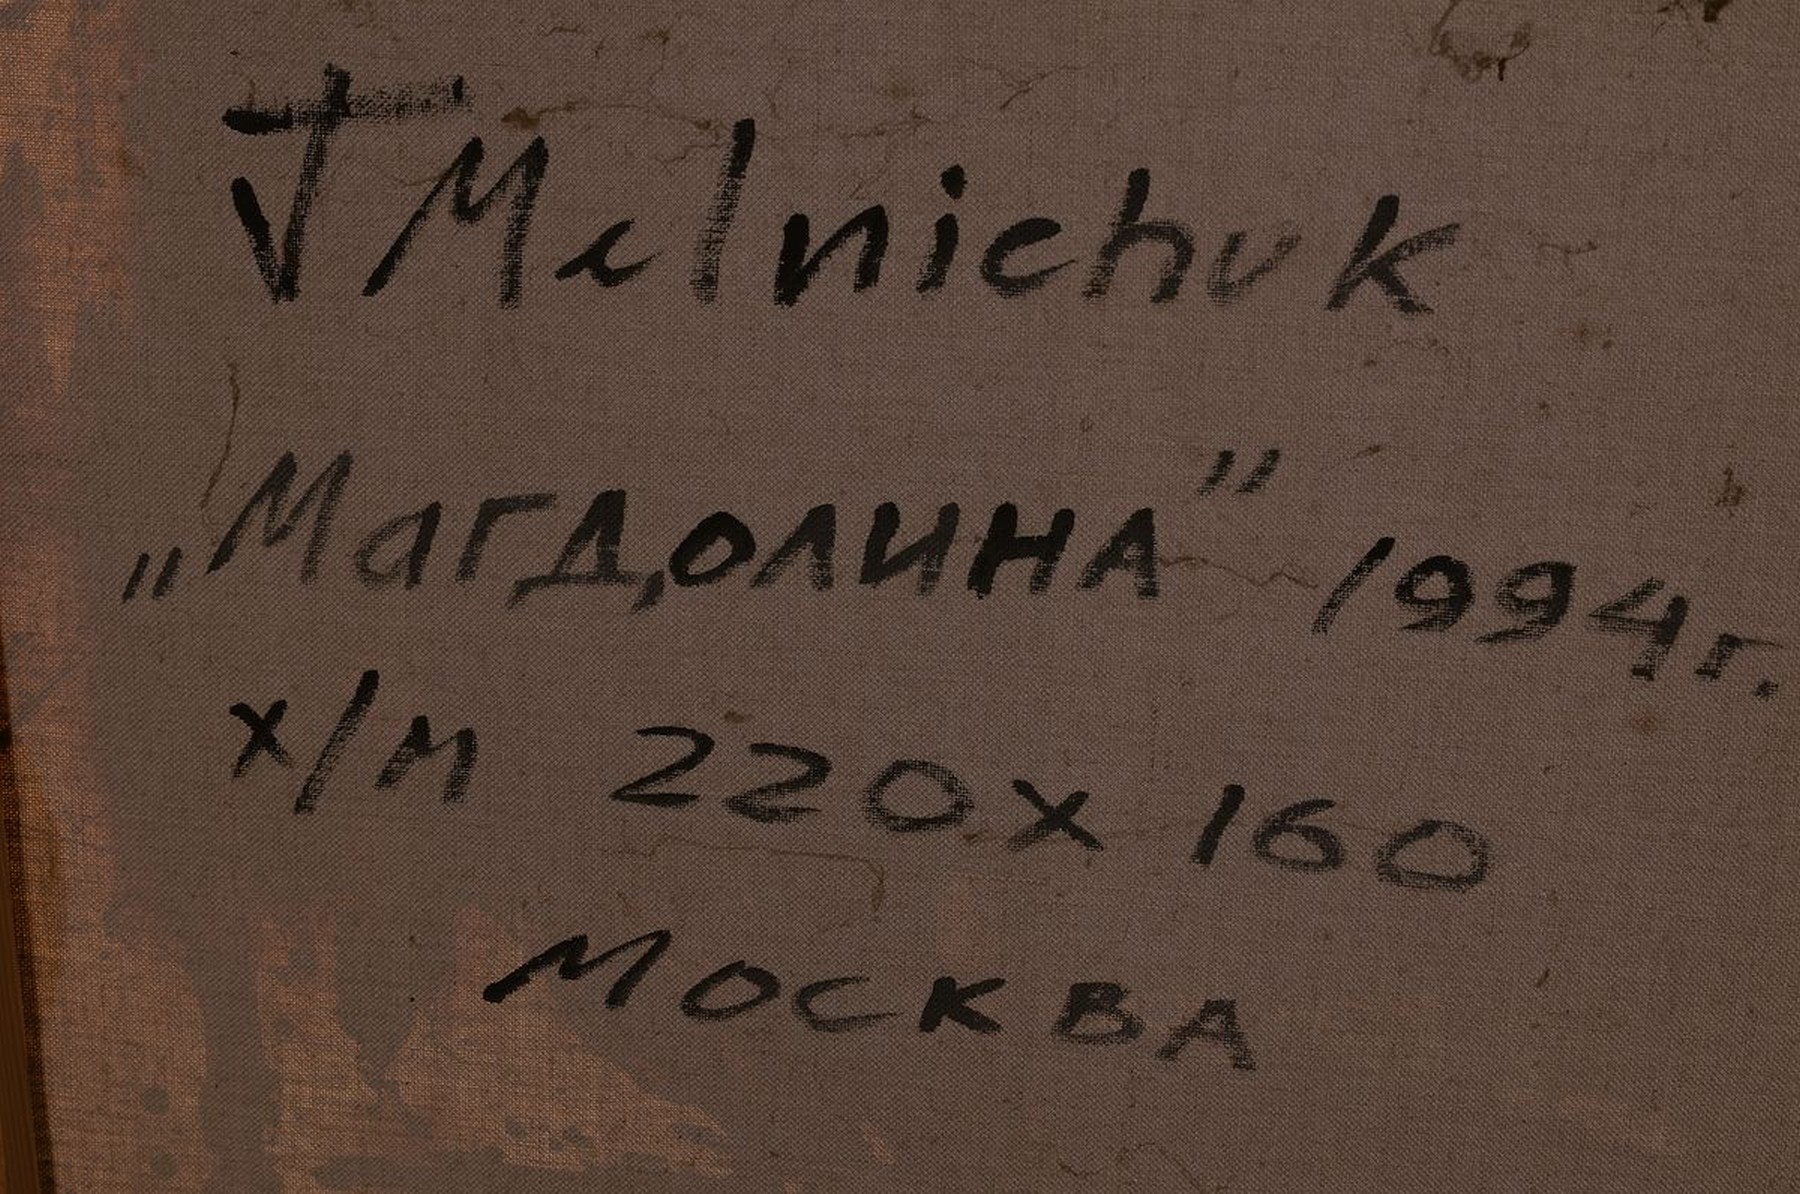 J Melnichuk
„Магдолина" 1994г.
х/м 220х160
Москва